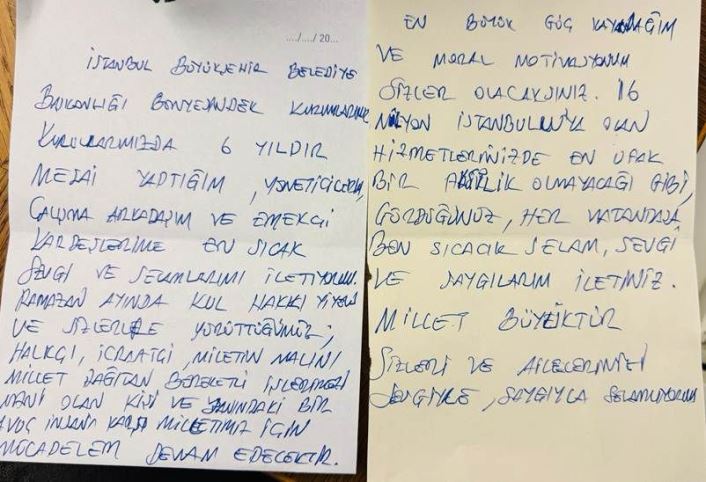 ..../..../ 20...
İSTANBUL BÜYÜKŞEHİR BELEDİYE
BAŞKANLIĞI BÜNYESİNDEK KURUMLARIMIZ
KURULLARIMIZDA 6 YILDIR
MESAİ YAPTIĞIM, YÖNETİCİLERİM,
ÇALIŞMA ARKADAŞIM VE EMEKÇİ
KARDEŞLERİME EN SICAK
SEVGİ VE SELAMLARIMI İLETİYORUM.
RAMAZAN AYINDA KUL HAKKI YİYEN
VE SİZLERLE YÜRÜTTÜĞÜMÜZ;
HALKÇI, İCRAATÇI, MİLLETİN MALINI
MİLLETE DAĞITAN BEREKETLİ İŞLERİMİZE
MANİ OLAN KİŞİ VE YANINDAKİ BİR
AVUÇ İNSANA KARŞI MİLLETİMİZ İÇİN
MÜCADELEM DEVAM EDECEKTİR.
EN BÜYÜK GÜÇ KAYNAĞIM
VE MORAL MOTİVASYONUM
SİZLER OLACAKSINIZ. 16
MİLYON İSTANBULLUYA OLAN
HİZMETLERİNİZDE EN UFAK
BİR OLMAYACAĞI GİBİ,
GÖRDÜĞÜNÜZ, HER VATANDAŞA
BEN SICACIK SELAM, SEVGİ
VE SAYGILARIM İLETİNİZ.
MİLLET BÜYÜKTÜR
SİZLERİ VE AİLELERİNİZİ
SEVGİYLE, SAYGIYLA SELAMLIYORUM